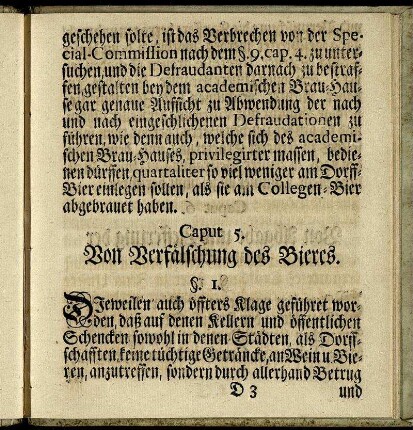 geschehen solte, ist das Verbrechen von der Spe-
cial-Commission nach dem §. 9. cap. 4. zu unter-
suchen, und die Defraudanten darnach zu bestraf-
fen, gestalten bey dem academischen Brau-Hau-
se gar genaue Aufsicht zu Abwendung der nach
und nach eingeschlichenen Defraudationen zu
führen, wie denn auch, welche sich des academi-
schen Brau-Hauses, privilegirter massen, bedie-
nen dürffen, quartaliter so viel weniger am Dorff-
Bier einlegen solten, als sie am Collegen-Bier
abgebrauet haben.
Caput 5.
Von Verfälschung des Bieres.
§. 1.
DJeweilen auch öffters Klage geführet wor-
den, daß auf denen Kellern und öffentlichen
Schencken sowohl in denen Städten, als Dorff-
schafften, keine tüchtige Geträncke, an Wein u Bie-
ren, anzutreffen, sondern durch allerhand Betrug
D 3 und